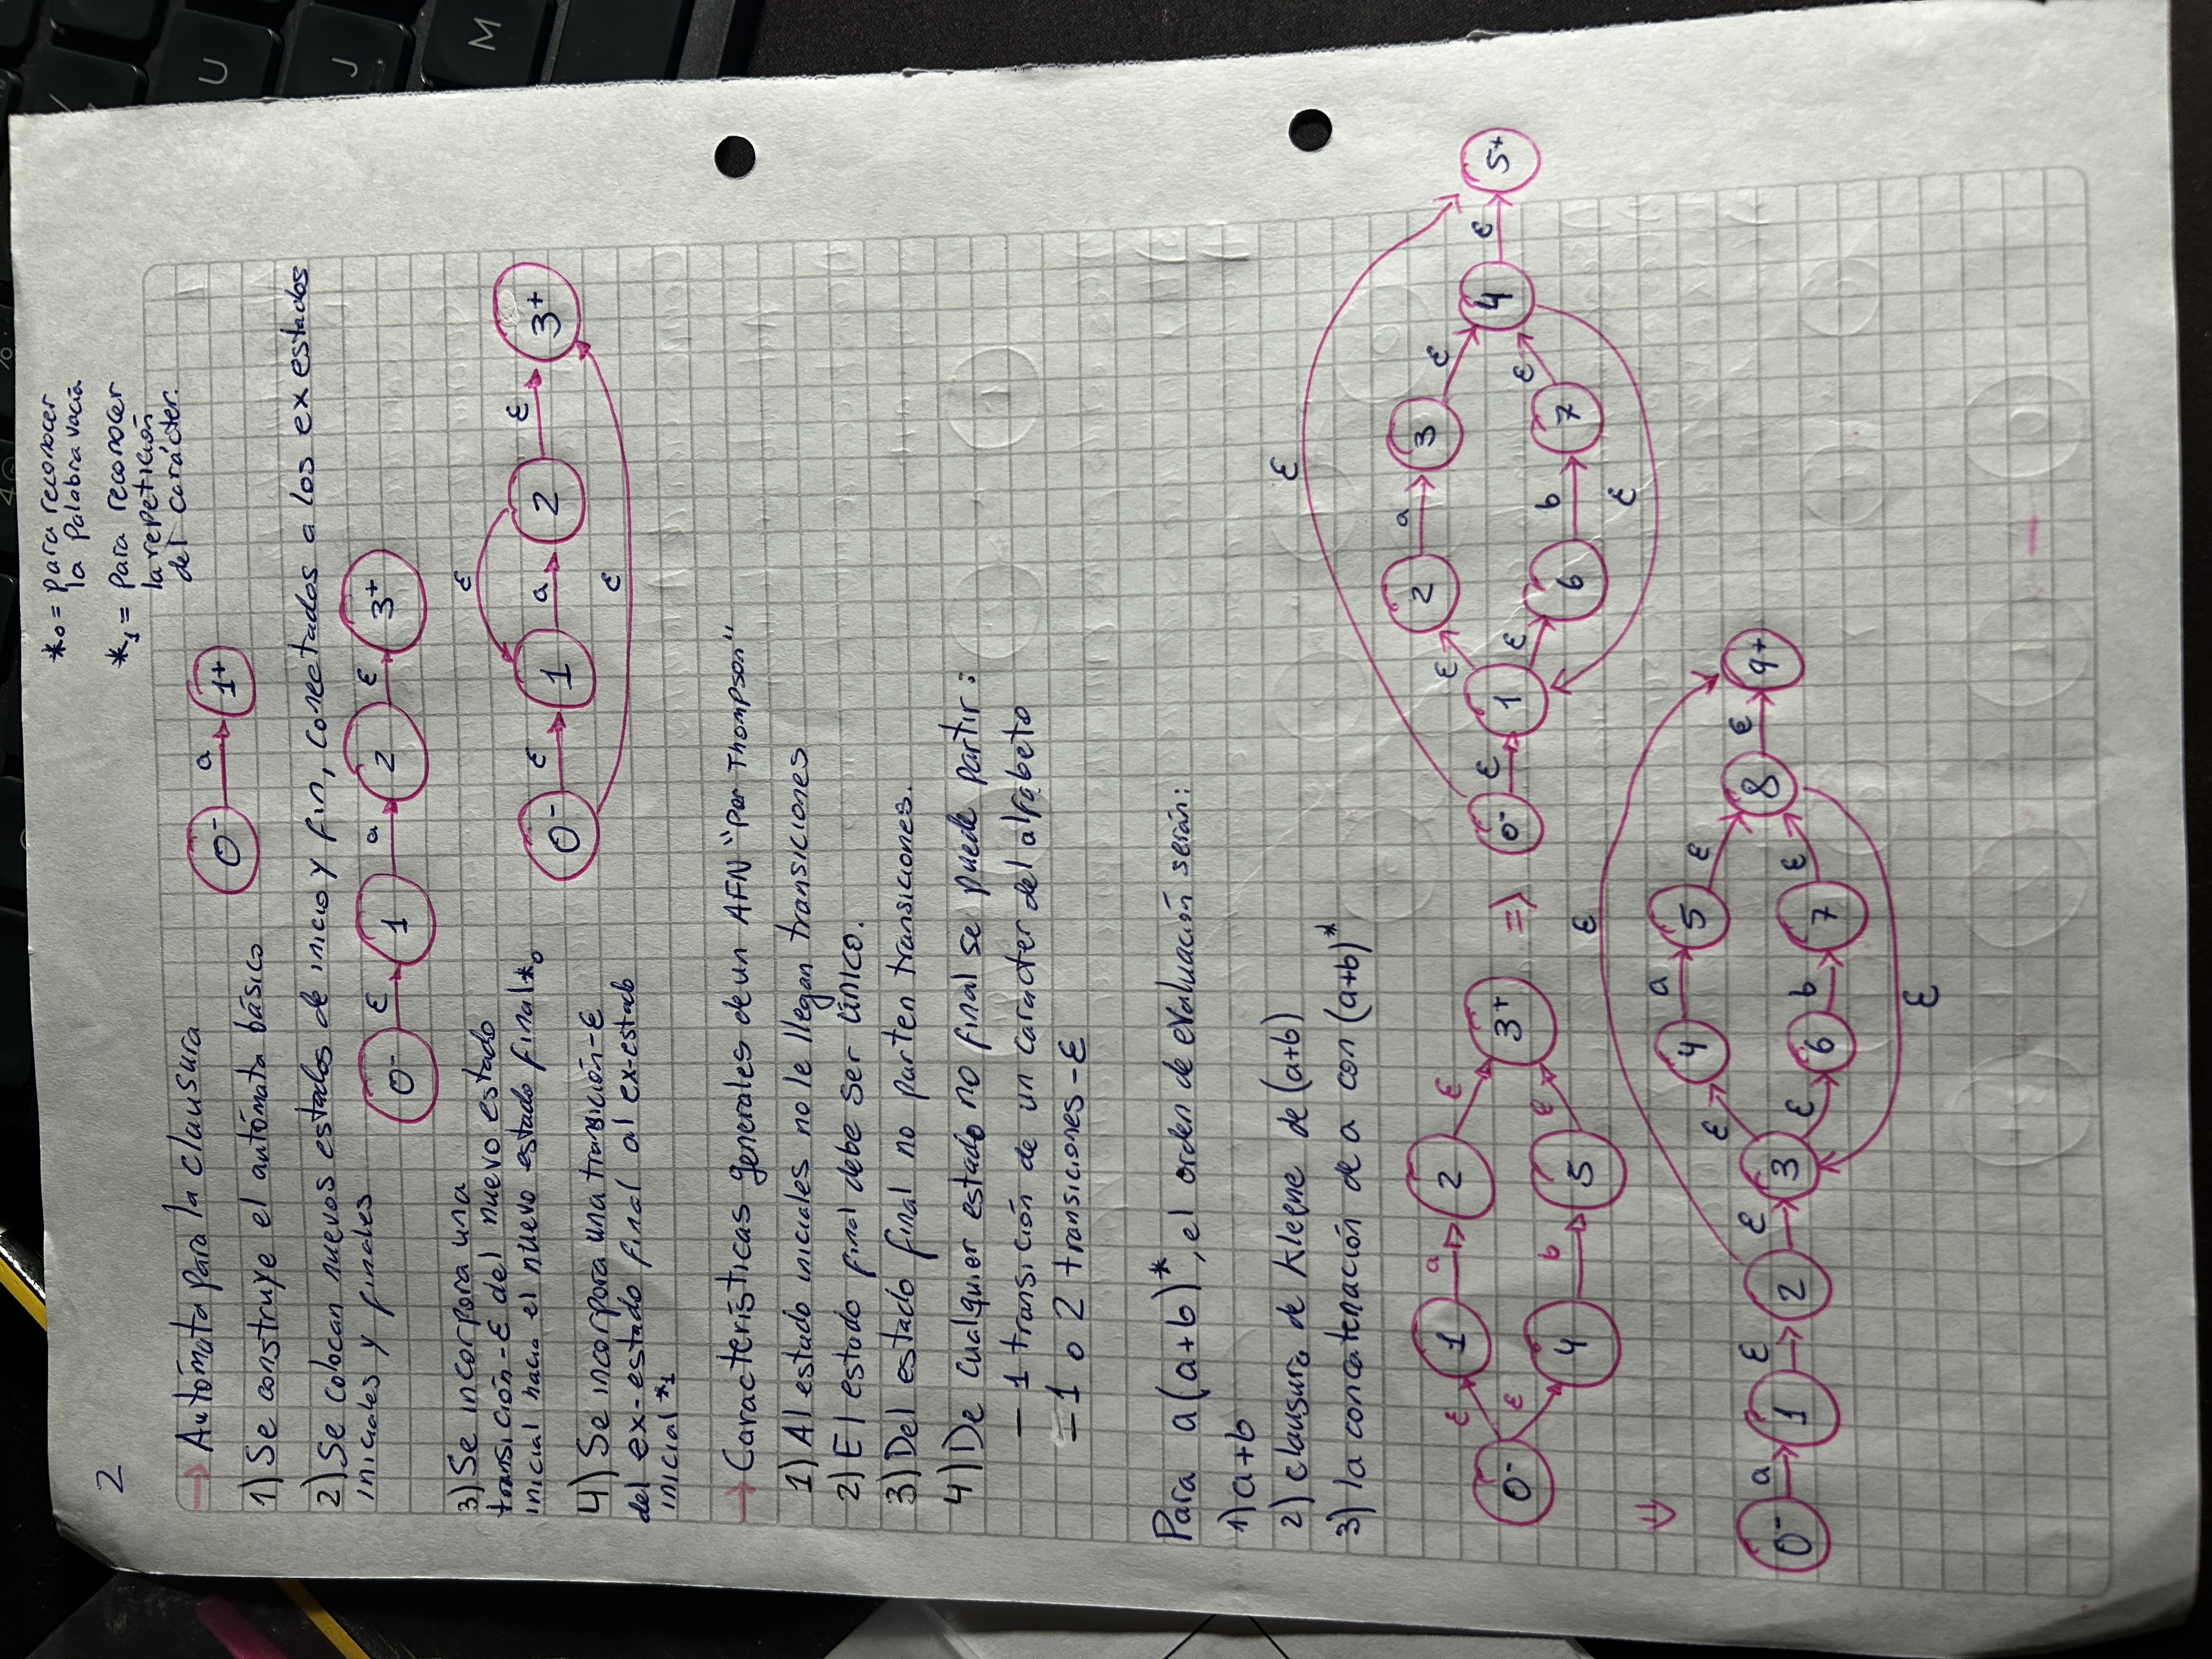 *₀ = para reconocer
la palabra vacia
*₁ = Para reconocer
la repetición
del carácter.
2
→ Autómata para la clausura
0⁻ a 1⁺
1) Se construye el autómata básico
2) Se colocan nuevos estados de inicio y fin, conectados a los ex estados
iniciales y finales
0⁻ ε 1 a 2 ε 3⁺
3) Se incorpora una
transición-ε del nuevo estado
inicial hacia el nuevo estado final*₀
4) Se incorpora una transición-ε
del ex-estado final al ex-estado
inicial *₁
ε
0⁻ ε 1 a 2 ε 3⁺
ε
→ Características generales de un AFN "Por Thompson"
1) Al estado iniciales no le llegan transiciones
2) El estado final debe ser único.
3) Del estado final no parten transiciones.
4) De cualquier estado no final se puede partir:
- 1 transición de un caracter del alfabeto
- 1 o 2 transiciones-ε
Para a(a+b)*, el orden de evaluación serán:
1) a+b
2) clausura de Kleene de (a+b)
3) la concatenación de a con (a+b)*
ε 1 a 2 ε
0⁻ 3⁺
ε 4 b 5 ε
=>
ε
ε 2 a 3 ε
0⁻ ε 1 4 ε 5+
ε 6 b 7 ε
ε
⇓
ε
ε 4 a 5 ε
0⁻ a 1 ε 2 ε 3 8 ε 9+
ε 6 b 7 ε
ε
U
J
M